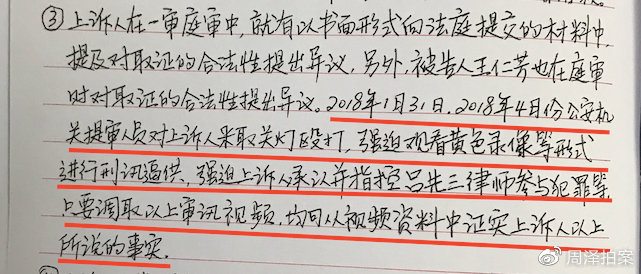 ③上诉人在一审庭审中,就有以书面形式向法庭提交的材料中,
提及对取证的合法性提出异议,另外,被告人王仁芳也在庭审
时对取证的合法性提出异议。2018年1月31日,2018年4月份公安机
关提审人员对上诉人采取关灯殴打,强迫观看黄色录像等形式
进行刑讯逼供,强迫上诉人承认并指控吕先三律师参与犯罪等,
只要调取以上审讯视频,均可从视频资料中证实上诉人以上
所说的事实.
@周泽拍案